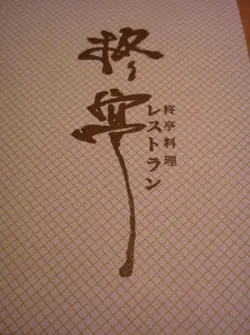 柊亭
柊亭料理
レストラン